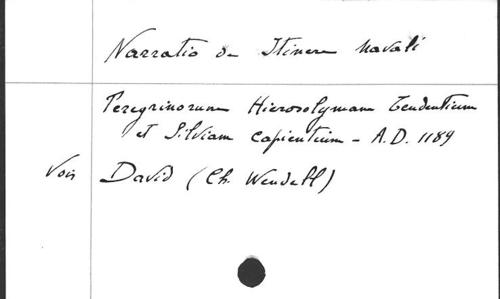 Narratio de Itinere navali
Peregrinorum Hierosolymam tendentium
et Silviam capientium - A.D. 1189
Voir David (Ch. Wendell)